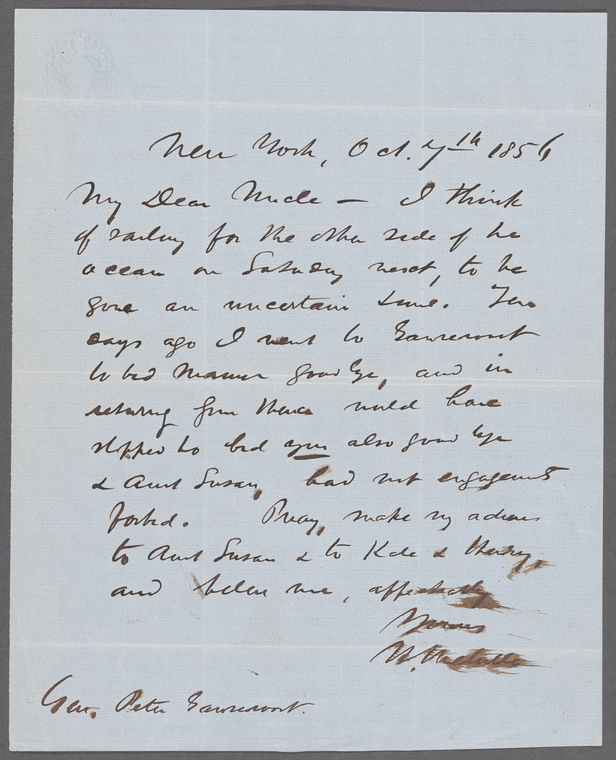 New York, Oct. 7th 1856
My Dear Uncle — I think
of sailing for the other side of the
ocean on Saturday next, to be
gone an uncertain time. Ten
days ago I went to Gansevoort
to bid Mamma good bye, and in
returning from thence would have
stopped to bid you also good bye
& Aunt Susan, had not engagements
forbid. Pray, make my adieus
to Aunt Susan & to Kate & Henry,
and believe me, affectionately
Yours
H. Melville
Gen. Peter Gansevoort.